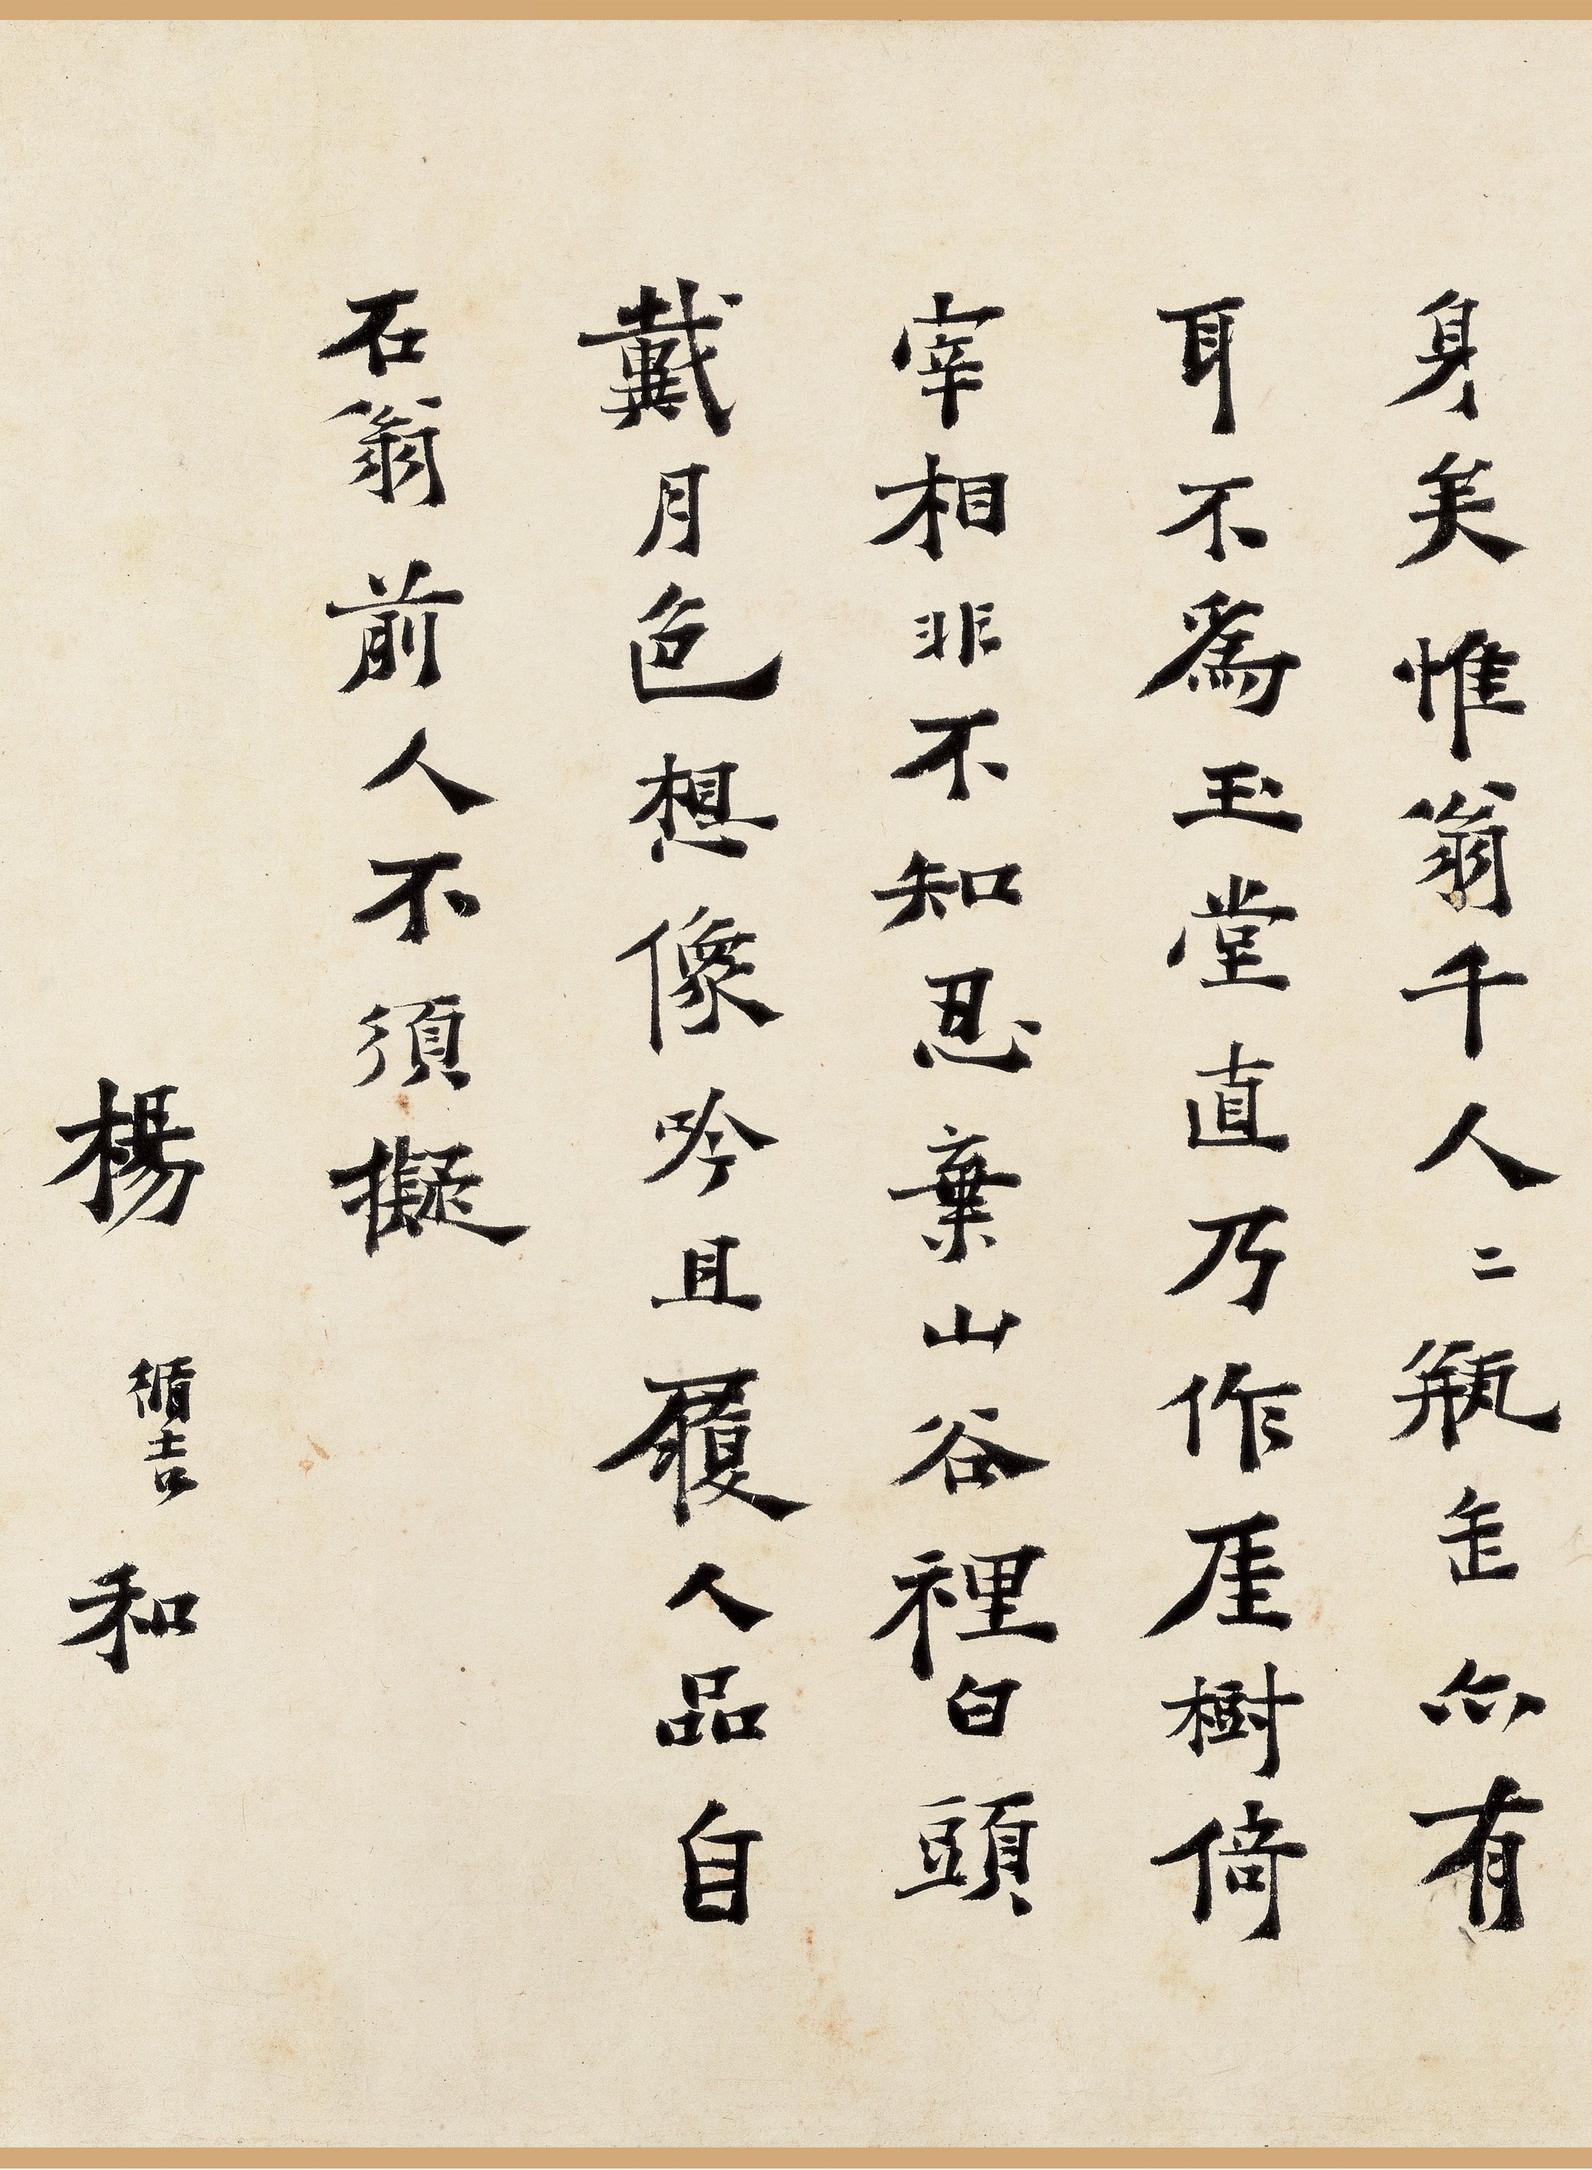 身矣惟翁千人二瓶缶亦有
耳不為玉堂直乃作厓樹倚
宰相非不知忍棄山谷裡白頭
戴月色想像吟且履人品自
石翁前人不須擬
楊循吉和